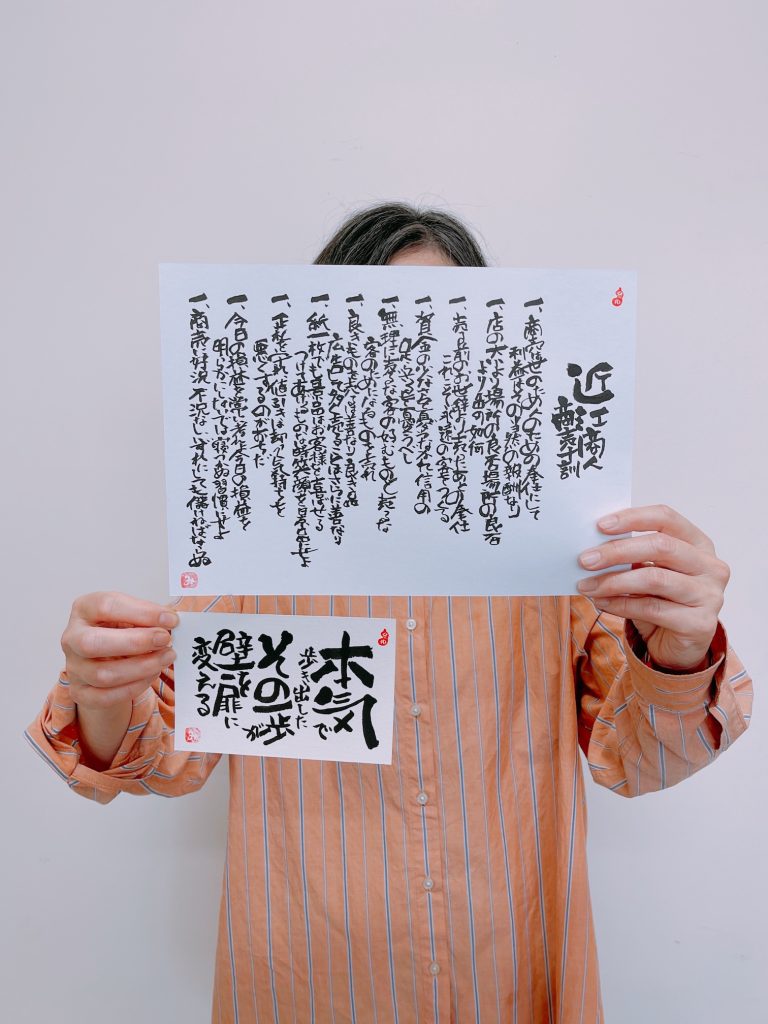 近江商人
商売十訓
一、商売は世のため人のための奉仕にして
利益はその当然の報酬なり
一、店の大小より場所の良否 場所の良否
より品の如何
一、売る前のお世辞より売った后の奉仕
これこそ永遠の客をつくる
一、資金の少なきを憂うなかれ 信用の
足らざるを憂うべし
一、無理に売るな 客の好むものも売るな
客のためになるものを売れ
一、良きものを売るは善なり 良き品を
広告して多く売ることはさらに善なり
一、紙一枚でも景品はお客様を喜ばせる
つけてあげるもののない時は笑顔を景品にせよ
一、正札を守れ 値引きは却って気持ちを
悪くするのがおちだ
一、今日の損益を常に考え 今日の損益を
明らかにしないでは寝につかぬ習慣にせよ
一、商売には好況 不況はない いずれにしても儲けねばならぬ
本気で
歩き出した
その一歩が
壁を扉に
変える